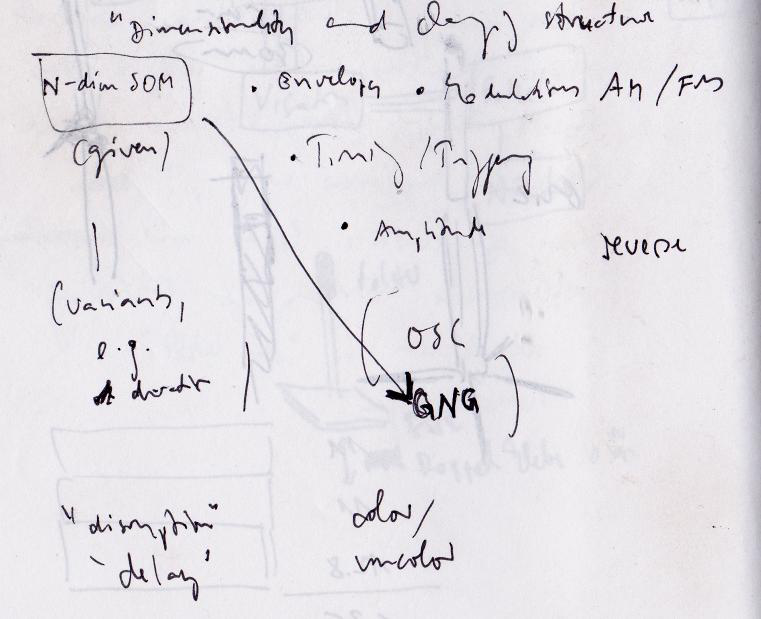 "Dimensionality and changing structure
N-dim SOM
• Envelope • Modulations AM / FM
(given)
• Timing / Trigging
• Amplitude
reverse
(variants,
e.g.
duration)
(OSC
GNG)
"disruption"
"delay"
color /
uncolor